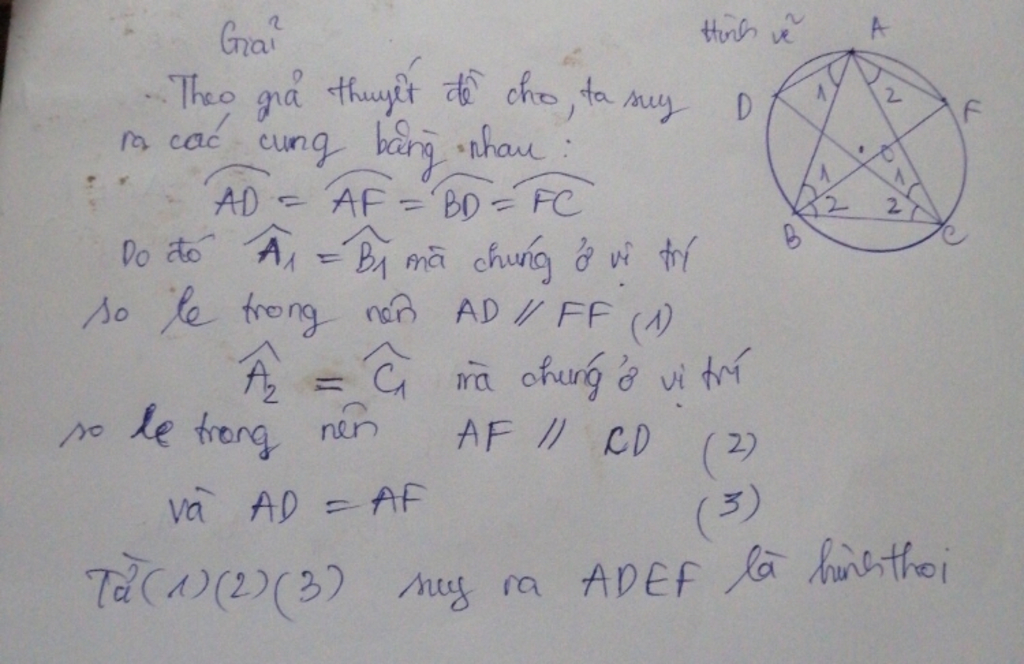 Giải
Hình vẽ
Theo giả thuyết đề cho, ta suy
ra các cung bằng nhau :
AD = AF = BD = FC
Do đó A1 = B1 mà chúng ở vị trí
so le trong nên AD // FF (1)
A2 = C1 mà chúng ở vị trí
so le trong nên AF // CD (2)
và AD = AF (3)
Từ (1)(2)(3) suy ra ADEF là hình thoi
A
D
F
1
2
O
1
2
1
2
B
C